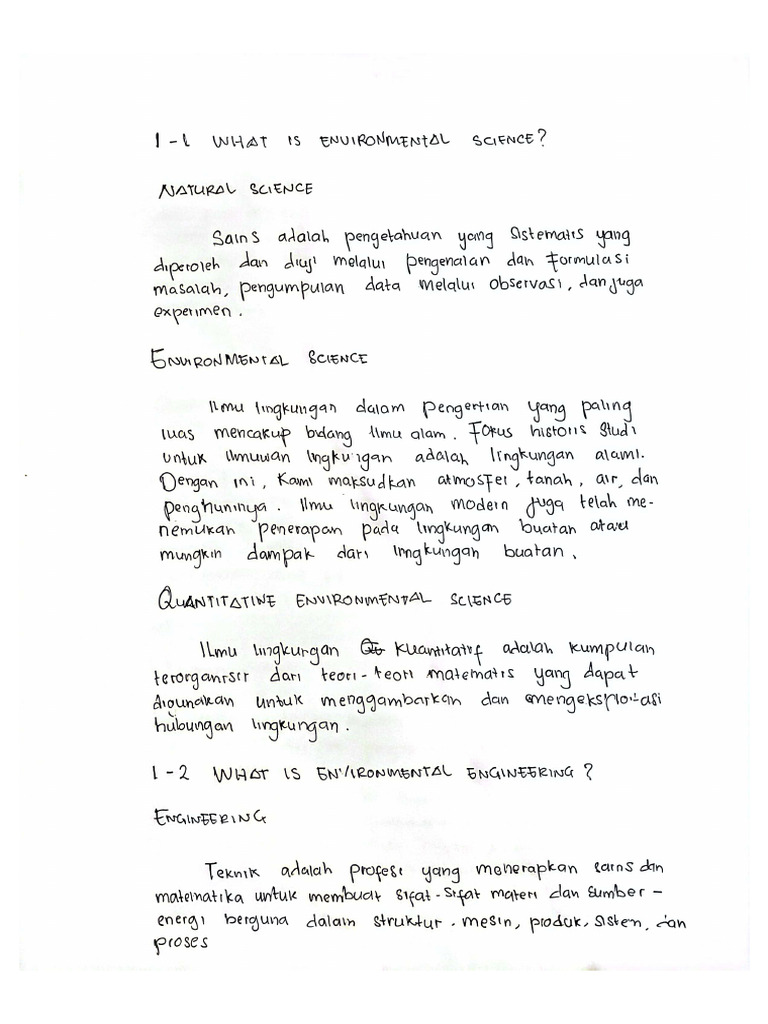 1-1 WHAT IS ENVIRONMENTAL SCIENCE?
NATURAL SCIENCE
Sains adalah pengetahuan yang sistematis yang
diperoleh dan diuji melalui pengenalan dan formulasi
masalah, pengumpulan data melalui observasi, dan juga
experimen.
ENVIRONMENTAL SCIENCE
Ilmu lingkungan dalam pengertian yang paling
luas mencakup bidang ilmu alam. Fokus historis studi
untuk ilmuwan lingkungan adalah lingkungan alami.
Dengan ini, kami maksudkan atmosfer, tanah, air, dan
penghuninya. Ilmu lingkungan modern juga telah me-
nemukan penerapan pada lingkungan buatan atau
mungkin dampak dari lingkungan buatan.
QUANTITATIVE ENVIRONMENTAL SCIENCE
Ilmu lingkungan Kuantitatif adalah kumpulan
terorganisir dari teori-teori matematis yang dapat
digunakan untuk menggambarkan dan mengeksploitasi
hubungan lingkungan.
1-2 WHAT IS ENVIRONMENTAL ENGINEERING?
ENGINEERING
Teknik adalah profesi yang menerapkan sains dan
matematika untuk membuat sifat-sifat materi dan sumber-
energi berguna dalam struktur, mesin, produk, sistem, dan
proses